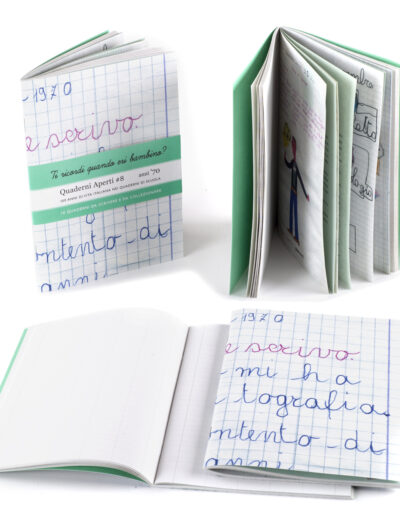 - 1970
e scrivo.
Ti ricordi quando eri bambino?
Quaderni Aperti #8 anni '70
100 anni di vita italiana nei quaderni di scuola
10 quaderni da scrivere e da collezionare
ontento-di
anni
- 1970
e scrivo.
- mi ha
tografia.
ontento-di
anni